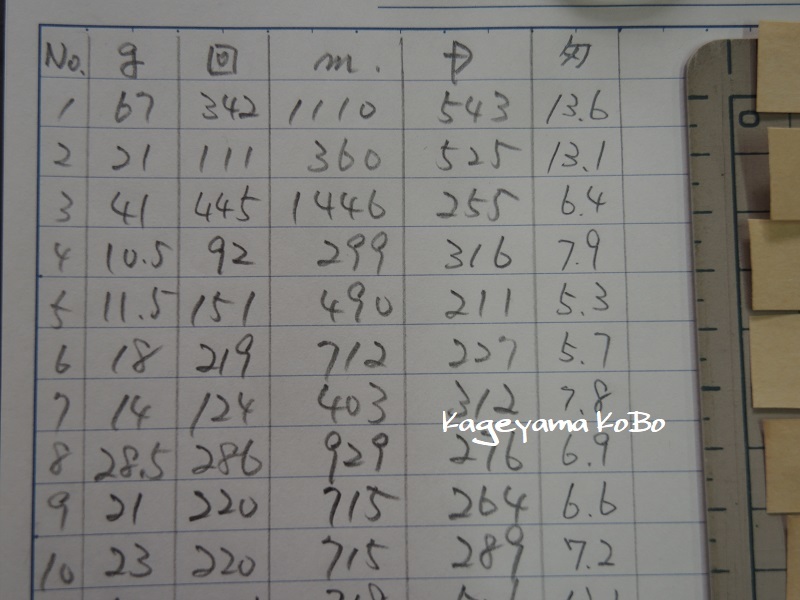 No. g 回 m. D 匁
1 67 342 1110 543 13.6
2 21 111 360 525 13.1
3 41 445 1446 255 6.4
4 10.5 92 299 316 7.9
5 11.5 151 490 211 5.3
6 18 219 712 227 5.7
7 14 124 403 312 7.8
Kageyama KoBo
8 28.5 286 929 276 6.9
9 21 220 715 264 6.6
10 23 220 715 289 7.2